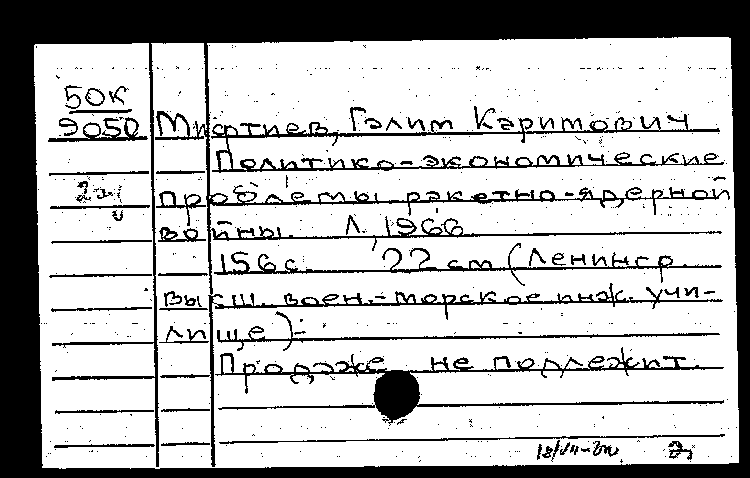 50К
9050 Мифтиев, Галим Каримович
Политико-экономические
2э
проблемы ракетно-ядерной
войны. Л., 1966.
156 с. 22 см (Ленингр.
высш. воен.-морское инж. учи-
лище).-
Продаже не подлежит.